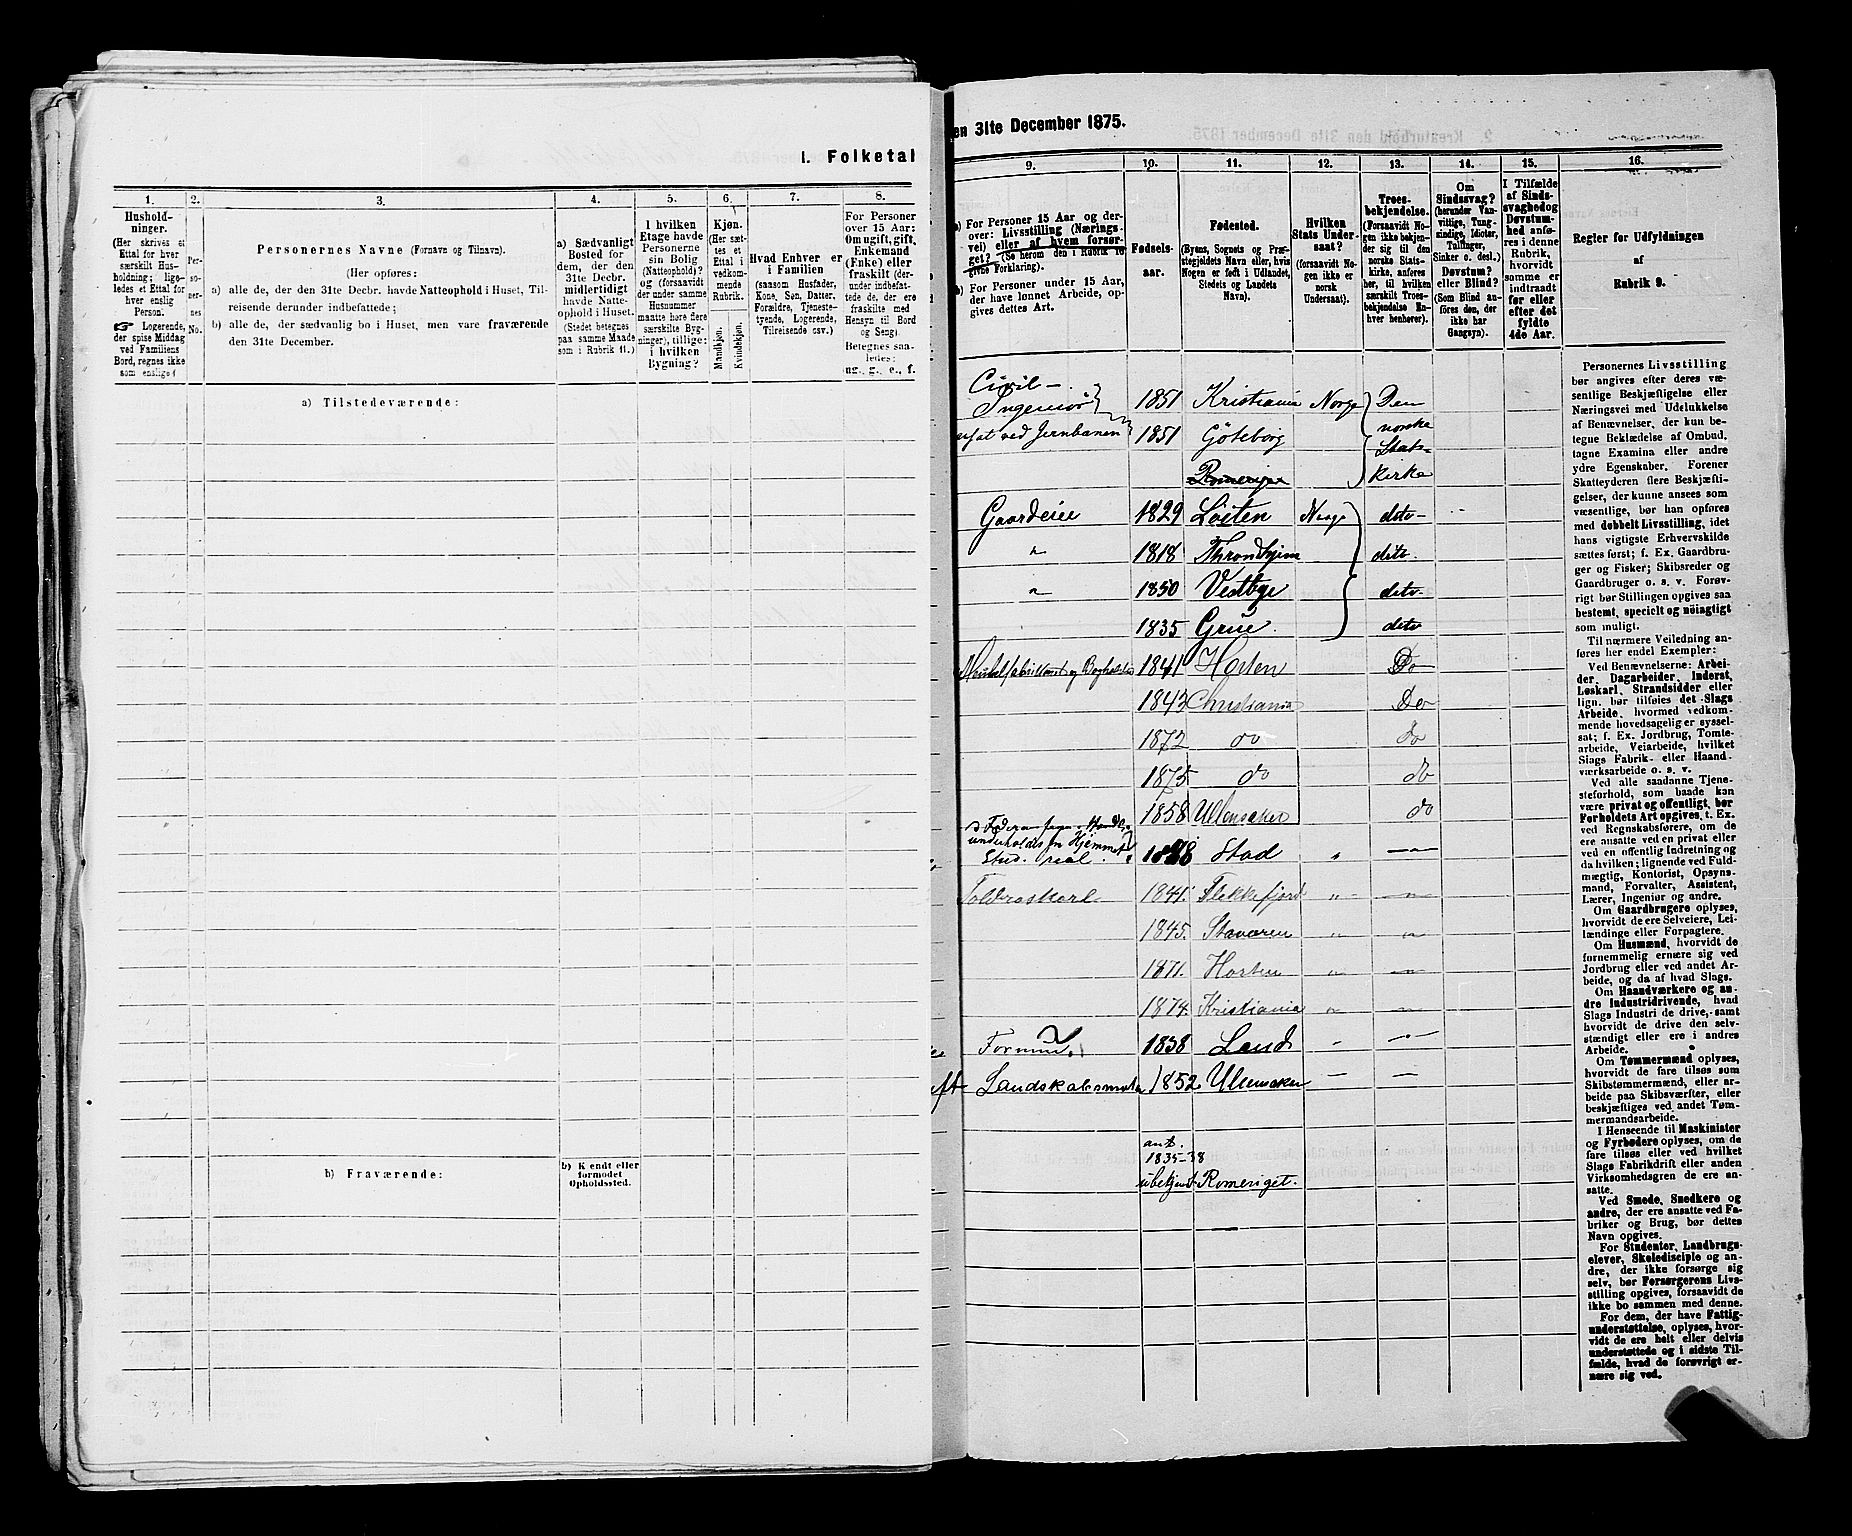 I. Folketal
1.
2.
3.
4.
5.
6.
7.
8.
Hushold-
ninger.
(Her skrives et
Ettal for hver
særskilt Hus-
holdning; lige-
ledes et Ettal for
hver enslig
Person.
☞ Logerende,
der spise Middag
ved Familiens
Bord, regnes ikke
som enslige.)
Per-
so-
ner-
nes
No.
Personernes Navne (Fornavn og Tilnavn).
(Her opføres:
a) alle de, der den 31te Decbr. havde Natteophold i Huset, Til-
reisende derunder indbefattede;
b) alle de, der sædvanlig bo i Huset, men vare fraværende
den 31te December.
a) Sædvanligt
Bosted for
dem, der den
31te Decbr.
midlertidigt
havde Natte-
ophold i Huset.
(Stedet betegnes
paa samme Maade
som i Rubrik 11.)
I hvilken
Etage havde
Personerne
sin Bolig
(Natteophold)?
og (forsaavidt
der under samme
Husnummer
maatte høre flere
særskilte Byg-
ninger), tillige:
i hvilken
Bygning?
Kjøn.
(Her sæt-
tes et
Ettal i
vedkom-
mende
Rubrik.
Mandkjøn.
Kvindekjøn.
Hvad Enhver er
i Familien
(saasom Husfader,
Kone, Søn, Datter,
Forældre, Tjeneste-
tyende, Logerende,
Tilreisende osv.)
For Personer
over 15 Aar:
Om ugift, gift,
Enkemand
(Enke) eller
fraskilt (der-
under indbefat-
tede de, der ere
fraskilte med
Hensyn til Bord
og Seng)
Betegnes saa-
ledes:
ug., g., e., f.
a) Tilstedeværende:
b) Fraværende:
b) Kjendt eller
formodet
Opholdssted.
en 31te December 1875.
9.
10.
11.
12.
13.
14.
15.
16.
a) For Personer 15 Aar og der-
over: Livsstilling (Nærings-
vei) eller af hvem forsør-
get? (Se herom den i Rubrik 16
givne Forklaring).
b) For Personer under 15 Aar,
der have lønnet Arbeide, op-
gives dettes Art.
Fødsels-
aar.
Fødested.
(Byens, Sognets og Præ-
stegjeldets Navn eller, hvis
Nogen er født i Udlandet,
Stedets og Landets
Navn).
Hvilken
Stats Under-
saat?
(forsaavidt No-
gen ikke er
norsk
Undersaat).
Troes-
bekjendelse.
(Forsaavidt No-
gen ikke bekjen-
der sig til den
norske Stats-
kirke, anføres
her, til hvilken
særskilt Troes-
bekjendelse En-
hver henhører).
Om
Sindssvag?
(herunder Van-
vittige, Tung-
sindige, Idioter,
Tullinger,
Sinker o. desl.)
Døvstum?
eller Blind?
(Som Blind an-
føres den, der
ikke har
Gangsyn).
I Tilfælde
af Sinds-
svaghed og
Døvstum-
hed anfø-
res i denne
Rubrik,
hvorvidt
samme er
indtraadt
før eller
efter det
fyldte
4de Aar.
Regler for Udfyldningen
af
Rubrik 9.
Civil-
Ingeniør
ved Jernbanen
1851 Kristiania Norge Den
norske
1851 Göteborg
Stats-
kirke
Gaardeier 1829 Löiten Norge dito
" 1818 Throndhjem dito
" 1850 Vestbye dito
1835 Grue. dito
1841 Horten Do
1843 Christiania Do
1872 do do
1875 do do
1858 Ullensaker do
underholdes fra Hjemmet
Stud. real. Stad " —"—
1841. Flekkefjord " —"—
1845. "  "
1871. Horten " —"—
1874. Kristiania " —"—
1838 Land - —"—
1852 Ullensaker — —
ant.
1835-38
ubekjent Romeriget.
Personernes Livsstilling
bør angives efter deres væ-
sentlige Beskjæftigelse eller
Næringsvei med Udelukkelse
af Benævnelser, der kun be-
tegne Beklædelse af Ombud,
tagne Examina eller andre
ydre Egenskaber. Forener
Skatteyderen flere Beskjæfti-
gelser, der kunne ansees som
væsentlige, bør han opføres
med dobbelt Livsstilling, idet
hans vigtigste Erhvervskilde
sættes først; f. Ex. Gaardbru-
ger og Fisker; Skibsreder og
Gaardbruger o. s. v. Forøv-
rigt bør Stillingen opgives saa
bestemt, specielt og nöiagtigt
som muligt.
Til nærmere Veiledning an-
føres her endel Exempler:
Ved Benævnelserne: Arbei-
der, Dagarbeider, Inderst,
Løskarl, Strandsidder eller
lign. bør tilføies det Slags
Arbeide, hvormed vedkom-
mende hovedsagelig er syssel-
sat; f. Ex. Jordbrug, Tomte-
arbeide, Veiarbeide, hvilket
Slags Fabrik- eller Haand-
værksarbeide o. s. v.
Ved alle saadanne Tjene-
steforhold, som baade kan
være privat og offentligt, bør
Forholdets Art opgives, t. Ex.
ved Regnskabsførere, om de
ere ansatte ved en privat eller
ved en offentlig Indretning og
da hvilken; lignende ved Fuld-
mægtig, Kontorist, Opsyns-
mand, Forvalter, Assistent,
Lærer, Ingeniør og andre.
Om Gaardbrugere oplyses,
hvorvidt de ere Selveiere, Lei-
lændinge eller Forpagtere.
Om Husmænd, hvorvidt de
fornemmelig ernære sig ved
Jordbrug eller ved andet Ar-
beide, og da af hvad Slags.
Om Haandværkere og an-
dre Industridrivende, hvad
Slags Industri de drive, samt
hvorvidt de drive den selv-
stændigt eller ere i andres
Arbeide.
Om Tømmermænd oplyses,
hvorvidt de fare tilsøs som
Skibstømmermænd, eller ar-
beide paa Skibsværfter, eller
beskjæftiges ved andet Tøm-
mermandsarbeide.
I Henseende til Maskinister
og Fyrbødere oplyses, om de
fare tilsøs eller ved hvilket
Slags Fabrikdrift eller anden
Virksomhedsgren de ere an-
satte.
Ved Smede, Snedkere og
andre, der ere ansatte ved Fa-
briker og Brug, bør dettes
Navn opgives.
For Studenter, Landbrugs-
elever, Skoledisciple og an-
dre, der ikke forsørge sig
selv, bør Forsørgerens Livs-
stilling opgives, forsaavidt de
ikke bo sammen med denne.
For dem, der have Fattig-
understøttelse, oplyses, hvor-
vidt de ere helt eller delvis
understøttede og i sidste Til-
fælde, hvad de forøvrigt er-
nære sig ved.